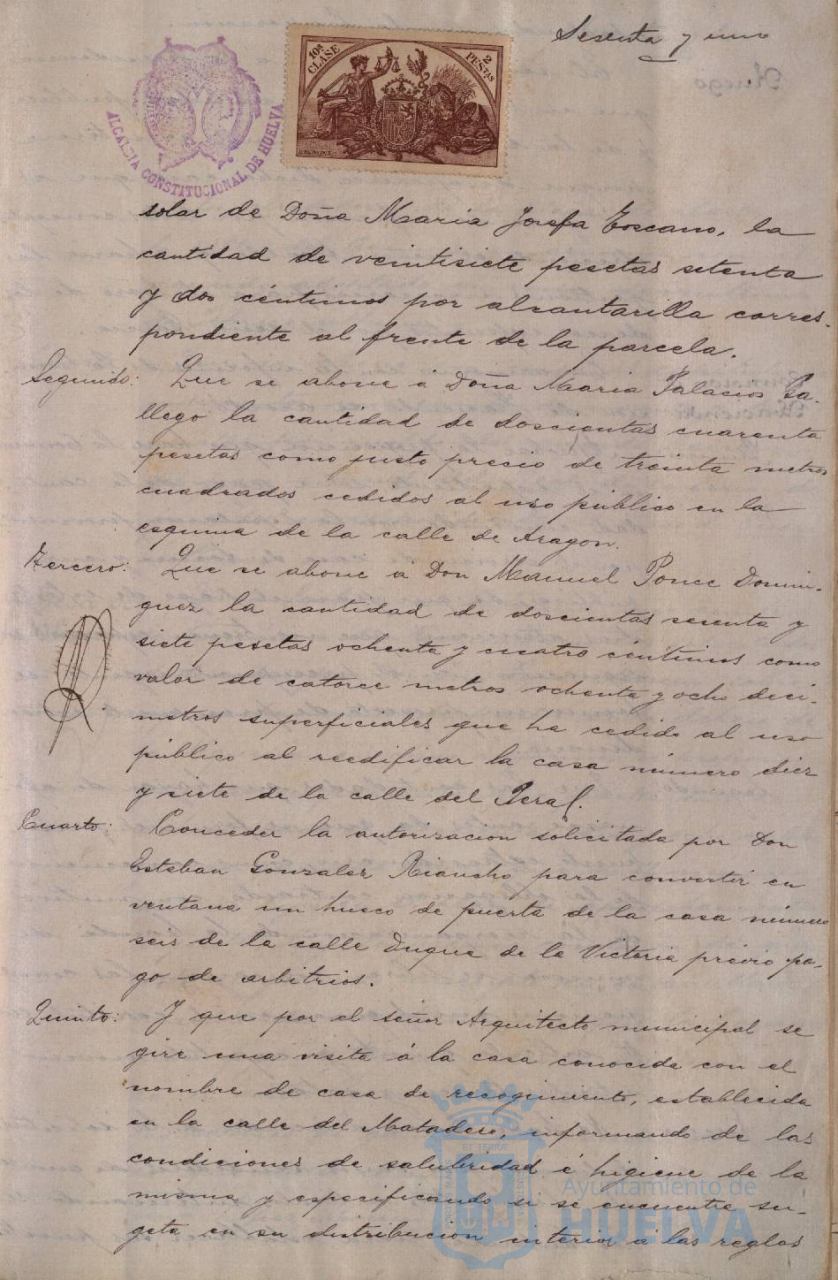 Sesenta y uno
10ª CLASE
2 PESETAS
ALCALDIA CONSTITUCIONAL DE HUELVA
solar de Doña Maria Josefa Toscano, la
cantidad de veintisiete pesetas setenta
y dos céntimos por alcantarilla corres-
pondiente al frente de la parcela.
Segundo: Que se abone á Doña Maria Palacios Ga-
llego la cantidad de doscientas cuarenta
pesetas como justo precio de treinta metros
cuadrados cedidos al uso público en la
esquina de la calle de Aragon.
Tercero: Que se abone á Don Manuel Ponce Domin-
guez la cantidad de doscientas sesenta y
siete pesetas ochenta y cuatro céntimos como
valor de catorce metros ochenta y ocho decí-
metros superficiales que ha cedido al uso
público al reedificar la casa número diez
y siete de la calle del Peral.
Cuarto: Conceder la autorizacion solicitada por Don
Esteban Gonzalez Riancho para convertir en
ventana un hueco de puerta de la casa número
seis de la calle Duque de la Victoria prévio pa-
go de arbitrios.
Quinto: Y que por el señor Arquitecto municipal se
gire una visita á la casa conocida con el
nombre de casa de recogimiento, establecida
en la calle del Matadero, informando de las
condiciones de salubridad é higiene de la
misma y especificando si se encuentra su-
geta en su distribucion interior a las reglas
Ayuntamiento de
HUELVA